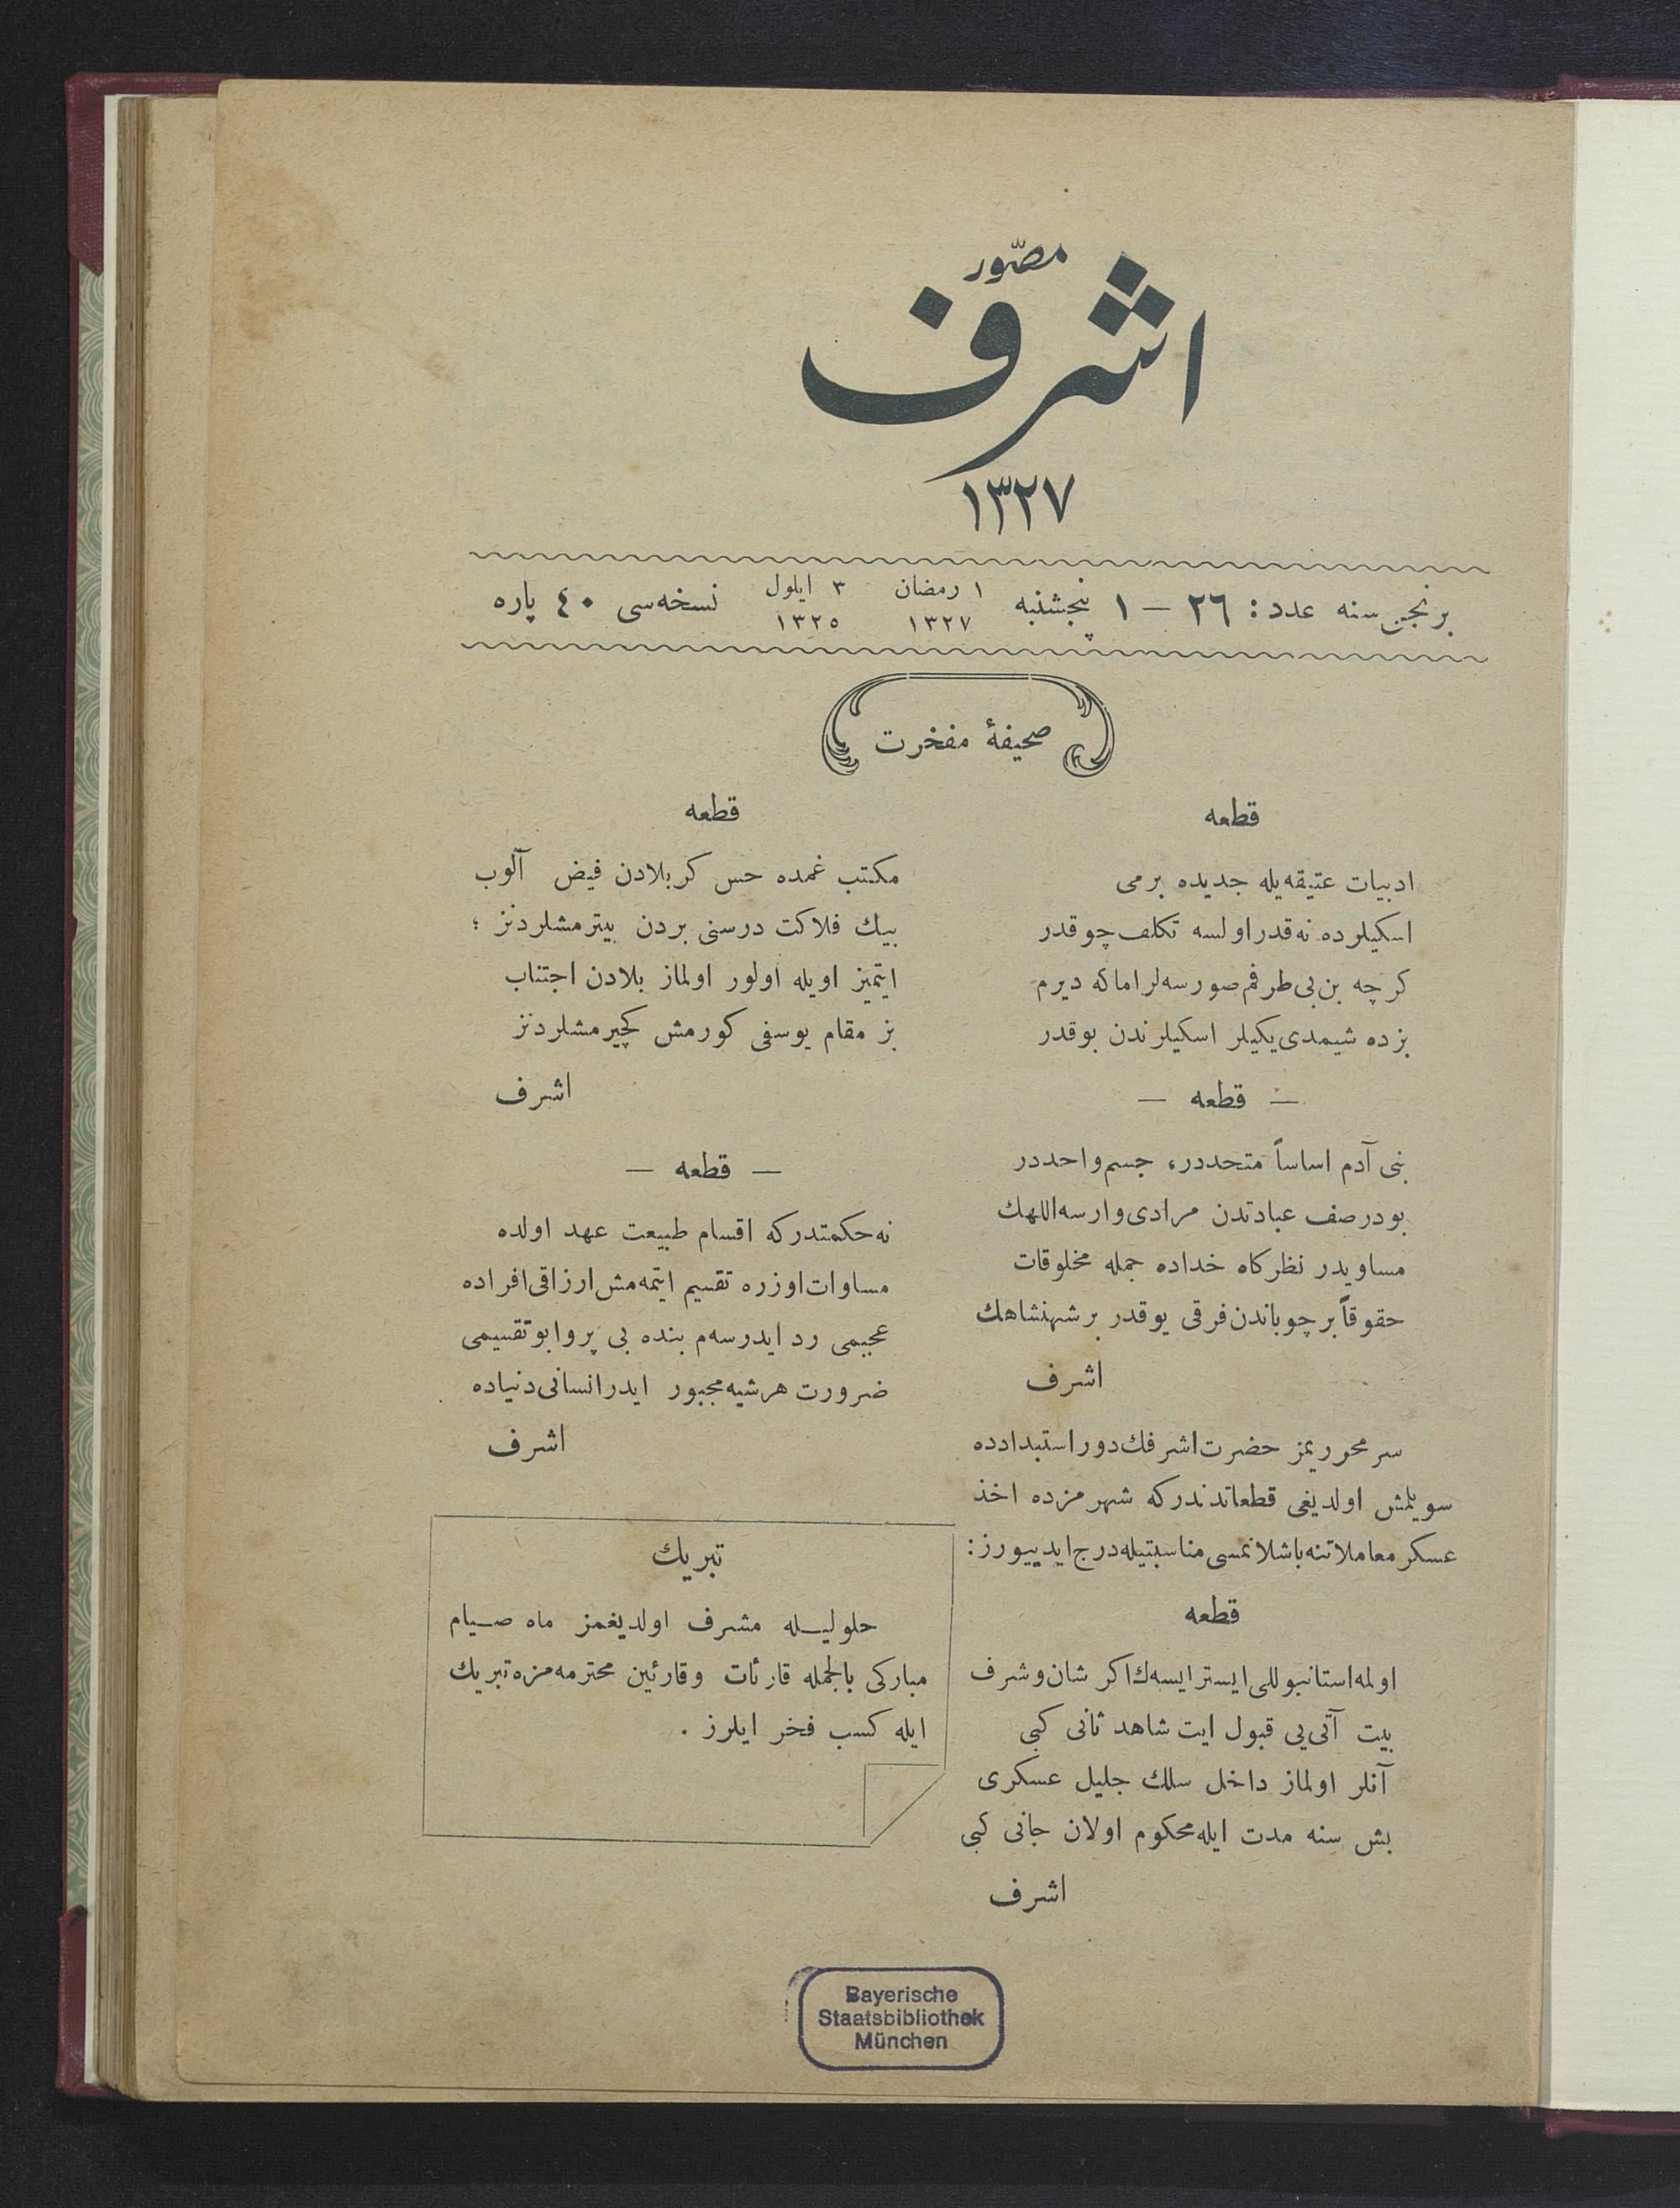 مصوّر
اشرف
١٣٢٧
برنجی سنه عدد : ٢٦ — ١ پنجشنبه ١ رمضان ١٣٢٧ ٣ ایلول ١٣٢٥ نسخه‌سی ٤٠ پاره
صحیفهٔ مفخرت
قطعه
ادبیات عتیقه‌یله جدیده برمی
اسکیلرده نه‌قدر اولسه تکلف چوقدر
کرچه بن بی طرفم صورسه‌لر اما که دیرم
بزده شیمدی یکیلر اسکیلرندن بوقدر
— قطعه —
بنی آدم اساساً متحددر، جسم واحددر
بودر صف عبادتدن مرادی وارسه اللهك
مساویدر نظرکاه خداده جمله مخلوقات
حقوقاً بر چوباندن فرقی یوقدر بر شهنشاهك
اشرف
سر محرریمز حضرت اشرفك دور استبدادده
سویلمش اولدیغی قطعاتندندرکه شهر مزده اخذ
عسکر معاملاتنه باشلانمسی مناسبتیله درج ایدییورز :
قطعه
اولمه استانبوللی ایستر ایسه‌ك اکر شان و شرف
بیت آتی یی قبول ایت شاهد ثانی کبی
آنلر اولماز داخل سلك جلیل عسکری
بش سنه مدت ایله محکوم اولان جانی کبی
اشرف
قطعه
مکتب غمده حس کربلادن فیض آلوب
بیك فلاکت درسنی بردن بیترمشلردنز ؛
ایتمیز اویله اولور اولماز بلادن اجتناب
بز مقام یوسفی کورمش کچیرمشلردنز
اشرف
— قطعه —
نه حکمتدرکه اقسام طبیعت عهد اولده
مساوات اوزره تقسیم ایتمه‌مش ارزاقی افراده
عجبمی رد ایدرسه‌م بنده بی پروا بو تقسیمی
ضرورت هر شیه مجبور ایدر انسانی دنیاده
اشرف
تبریك
حلولیله مشرف اولدیغمز ماه صیام
مبارکی بالجمله قارئات وقارئین محترمه‌مزه تبریك
ایله کسب فخر ایلرز .
Bayerische
Staatsbibliothek
München